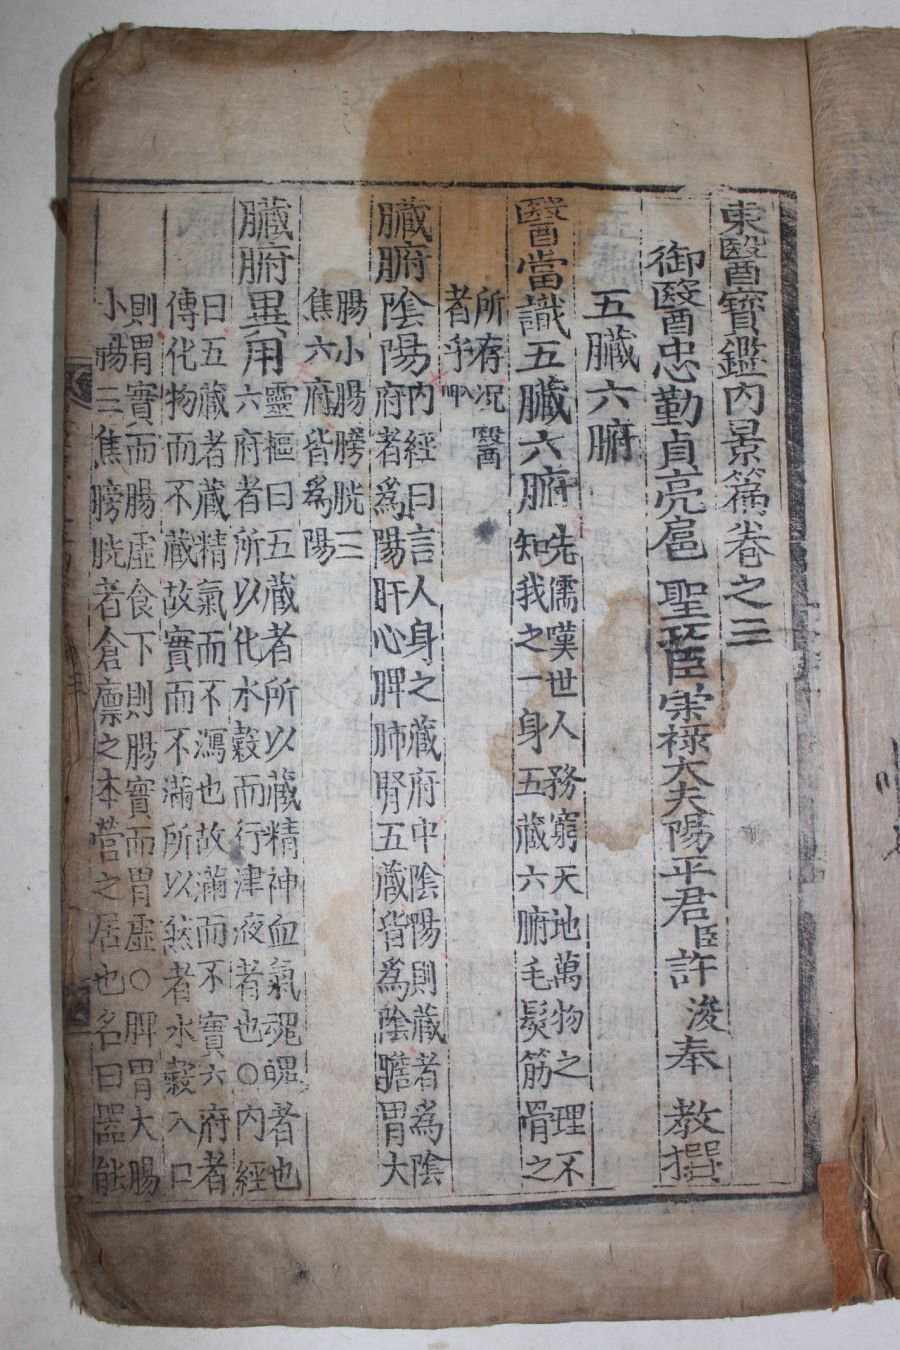 東醫寶鑑內景篇卷之三
御醫忠勤貞亮扈聖功臣崇祿大夫陽平君臣許浚奉教撰
五臟六腑
醫當識五臟六腑
先儒嘆世人務窮天地萬物之理不
知我之一身五藏六腑毛髮筋骨之
所存況醫
者乎
臟腑陰陽
內經曰言人身之藏府中陰陽則藏者為陰
府者為陽肝心脾肺腎五藏皆為陰膽胃大
腸小腸膀胱三
焦六府皆為陽
臟腑異用
靈樞曰五藏者所以藏精神血氣魂魄者也
六府者所以化水穀而行津液者也○內經
曰五藏者藏精氣而不瀉也故滿而不實六府者
傳化物而不藏故實而不滿所以然者水穀入口
則胃實而腸虛食下則腸實而胃虛○脾胃大腸
小腸三焦膀胱者倉廩之本營之居也名曰器能